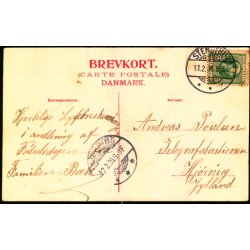 BREVKORT.
(CARTE POSTALE)
DANMARK.
Correspondance
Adresse.
Hjertelig Lykønskning
i anledning af
Fødselsdagen
Familien Bak
Andreas Poulsen
Telegrafstationen
Hjørring
Jylland